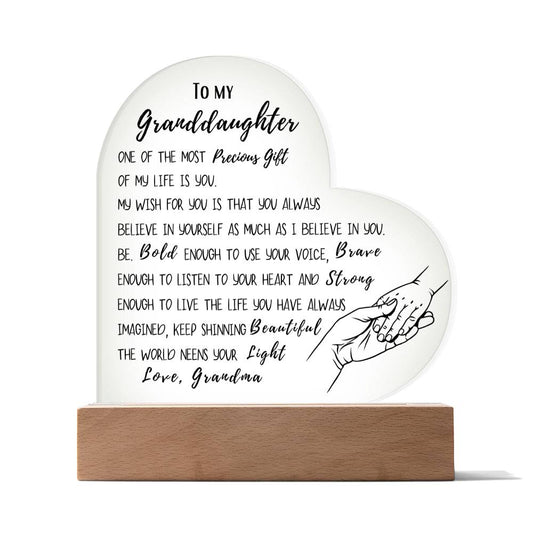 TO MY
Granddaughter
ONE OF THE MOST Precious Gift
OF MY LIFE IS YOU.
MY WISH FOR YOU IS THAT YOU ALWAYS
BELIEVE IN YOURSELF AS MUCH AS I BELIEVE IN YOU.
BE. Bold ENOUGH TO USE YOUR VOICE, Brave
ENOUGH TO LISTEN TO YOUR HEART AND Strong
ENOUGH TO LIVE THE LIFE YOU HAVE ALWAYS
IMAGINED, KEEP SHINNING Beautiful
THE WORLD NEENS YOUR Light
Love, Grandma